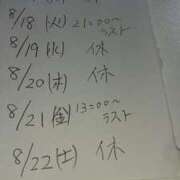 8/18(火) 21:00〜ラスト
8/19(水) 休
8/20(木) 休
8/21(金) 13:00〜ラスト
8/22(土) 休